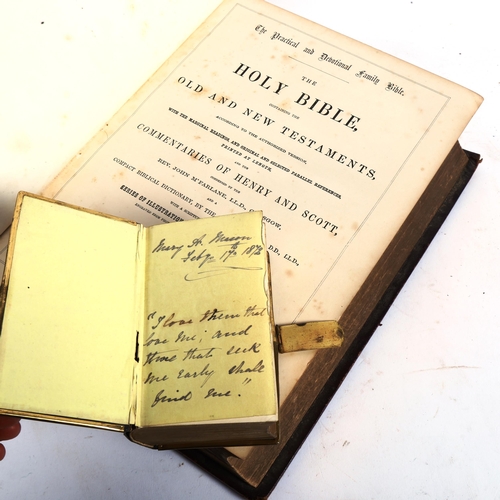 The Practical and Devotional Family Bible.
THE
HOLY BIBLE,
CONTAINING THE
OLD AND NEW TESTAMENTS,
ACCORDING TO THE AUTHORISED VERSION,
WITH THE MARGINAL READINGS AND ORIGINAL AND SELECTED PARALLEL REFERENCES
PRINTED AT LENGTH,
AND THE
COMMENTARIES OF HENRY AND SCOTT,
CONDENSED BY THE
REV. JOHN M'FARLANE, LL.D., GLASGOW.
AND A
COMPACT BIBLICAL DICTIONARY, BY THE
WITH A
SERIES OF ILLUSTRATION
DD., LL.D.,
Mary A.
Feb 17th 187
"I love them that
love me; and
those that seek
me early shall
find me."